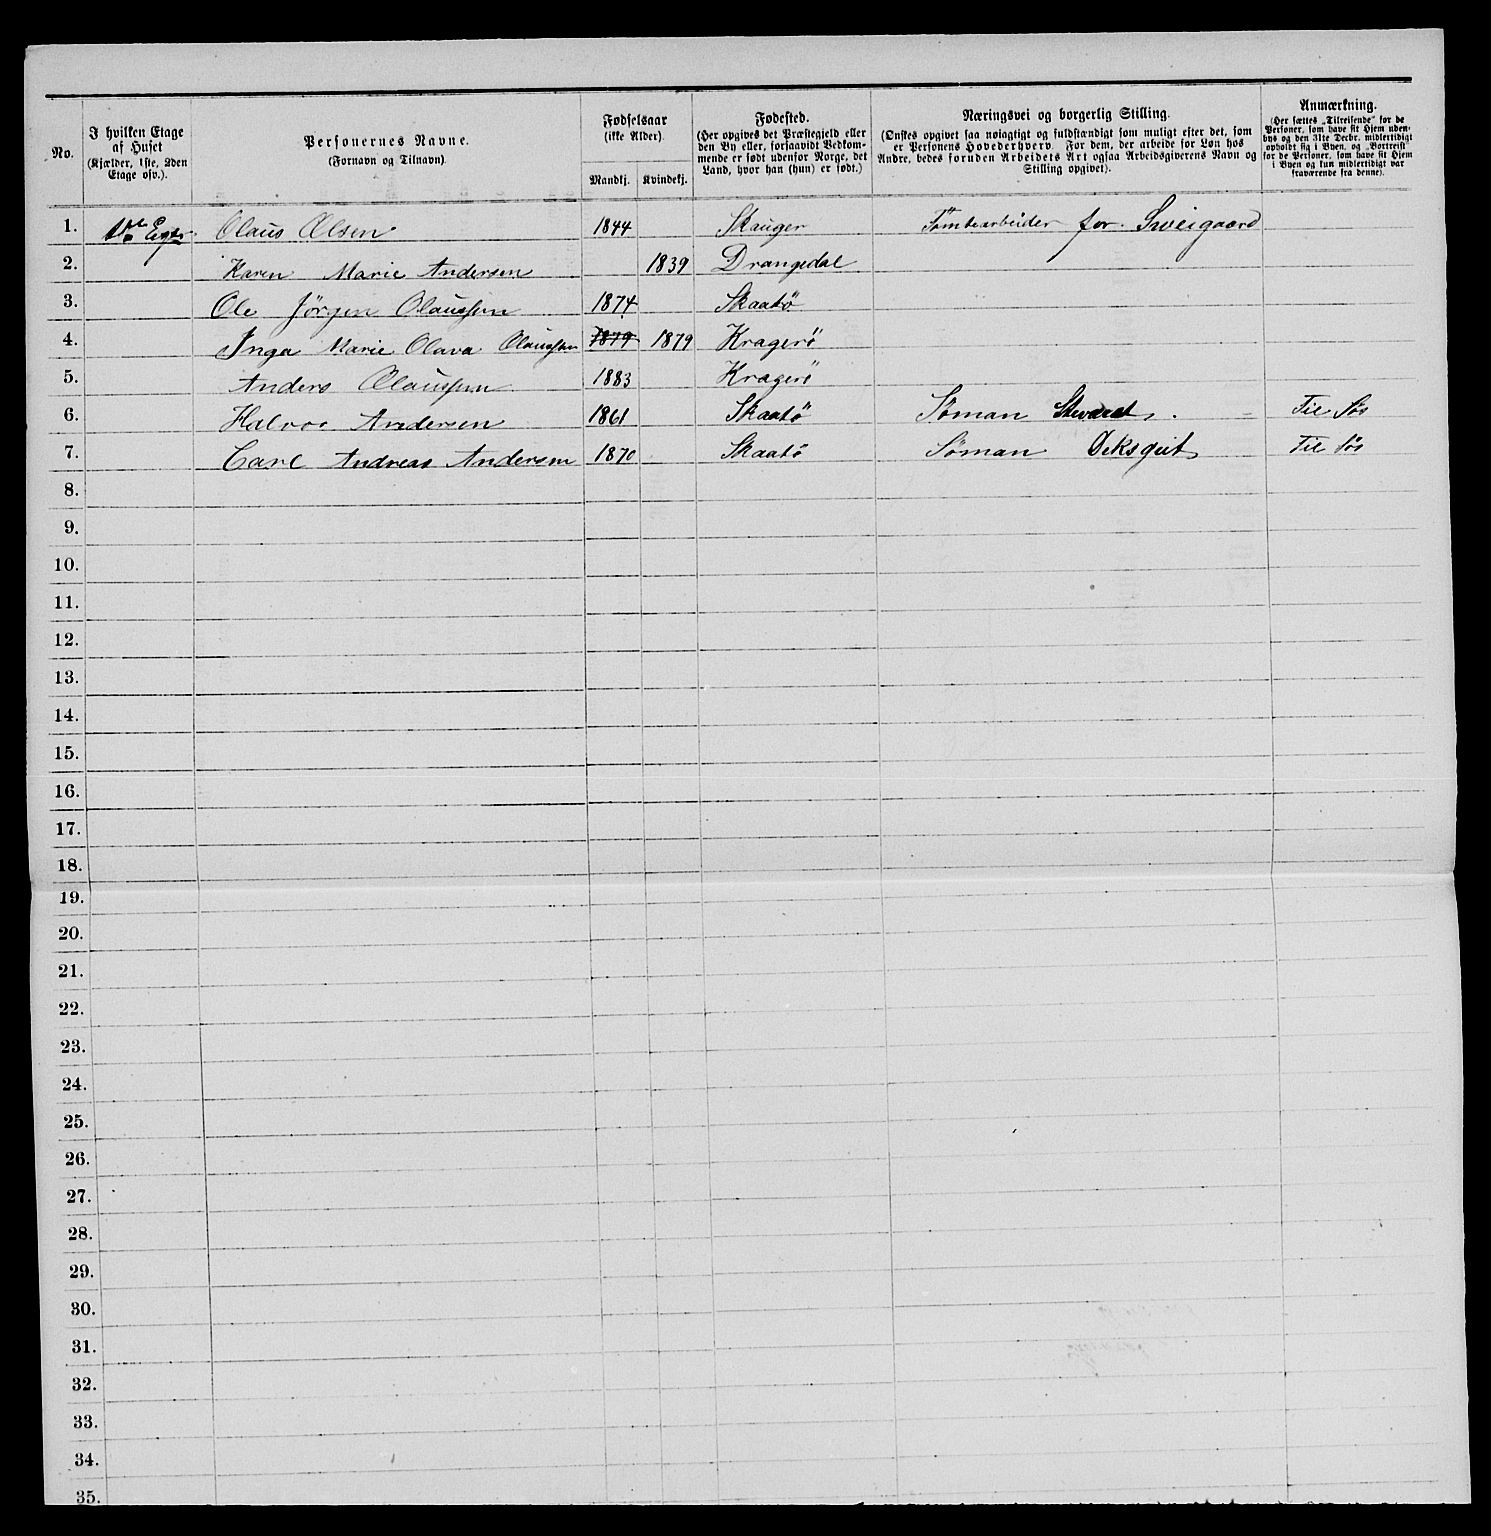 No.
I hvilken Etage af Huset (Kjælder, 1ste, 2den Etage osv.).
Personernes Navne. (Fornavn og Tilnavn).
Fødselsaar (ikke Alder).
Mandkj. Kvindekj.
Fødested. (Her opgives det Præstegjeld eller den By eller, forsaavidt Vedkommende er født udenfor Norge, det Land, hvor han (hun) er født.)
Næringsvei og borgerlig Stilling. (Ønskes opgivet saa nøiagtigt og fuldstændigt som muligt efter det, som er Personens Hovederhverv. For dem, der arbeide for Løn hos Andre, bedes foruden Arbeidets Art ogsaa Arbeidsgiverens Navn og Stilling opgivet).
Anmærkning. (Her sættes „Tilreisende" for de Personer, som have sit Hjem udenbys og den 31te Decbr. midlertidigt opholdt sig i Byen, og „Bortreist" for de Personer, som have sit Hjem i Byen og kun midlertidigt var fraværende fra denne).
1. Olaus Olsen 1844 Skauger Tömtearbeider for Sweigaard
2. Karen Marie Andersen 1839 Drangedal
3. Ole Jörgen Olaussen 1874 Skaatö
4. Inga Marie Olava Olaussen 1879 1879 Kragerö
5. Anders Olaussen 1883 Kragerö
6. Halvor Andersen 1861 Skaatö Söman Stward Til Søs
7. Carl Andreas Andersen 1870 Skaatö Söman Deksgut Til Søs
8.
9.
10.
11.
12.
13.
14.
15.
16.
17.
18.
19.
20.
21.
22.
23.
24.
25.
26.
27.
28.
29.
30.
31.
32.
33.
34.
35.